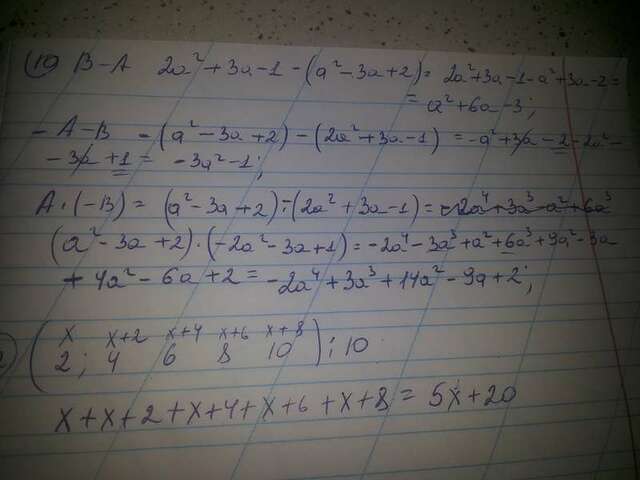 19) B-A 2a²+3a-1-(a²-3a+2)= 2a²+3a-1-a²+3a-2=
= a²+6a-3;
-A-B -(a²-3a+2)-(2a²+3a-1)=-a²+3a-2-2a²-
-3a+1= -3a²-1;
A·(-B)= (a²-3a+2)·-(2a²+3a-1)=-2a⁴+3a³-a²+6a³
(a²-3a+2)·(-2a²-3a+1)=-2a⁴-3a³+a²+6a³+9a²-3a
+4a²-6a+2=-2a⁴+3a³+14a²-9a+2;
x x+2 x+4 x+6 x+8
(2; 4 6 8 10) : 10
x+x+2+x+4+x+6+x+8= 5x+20